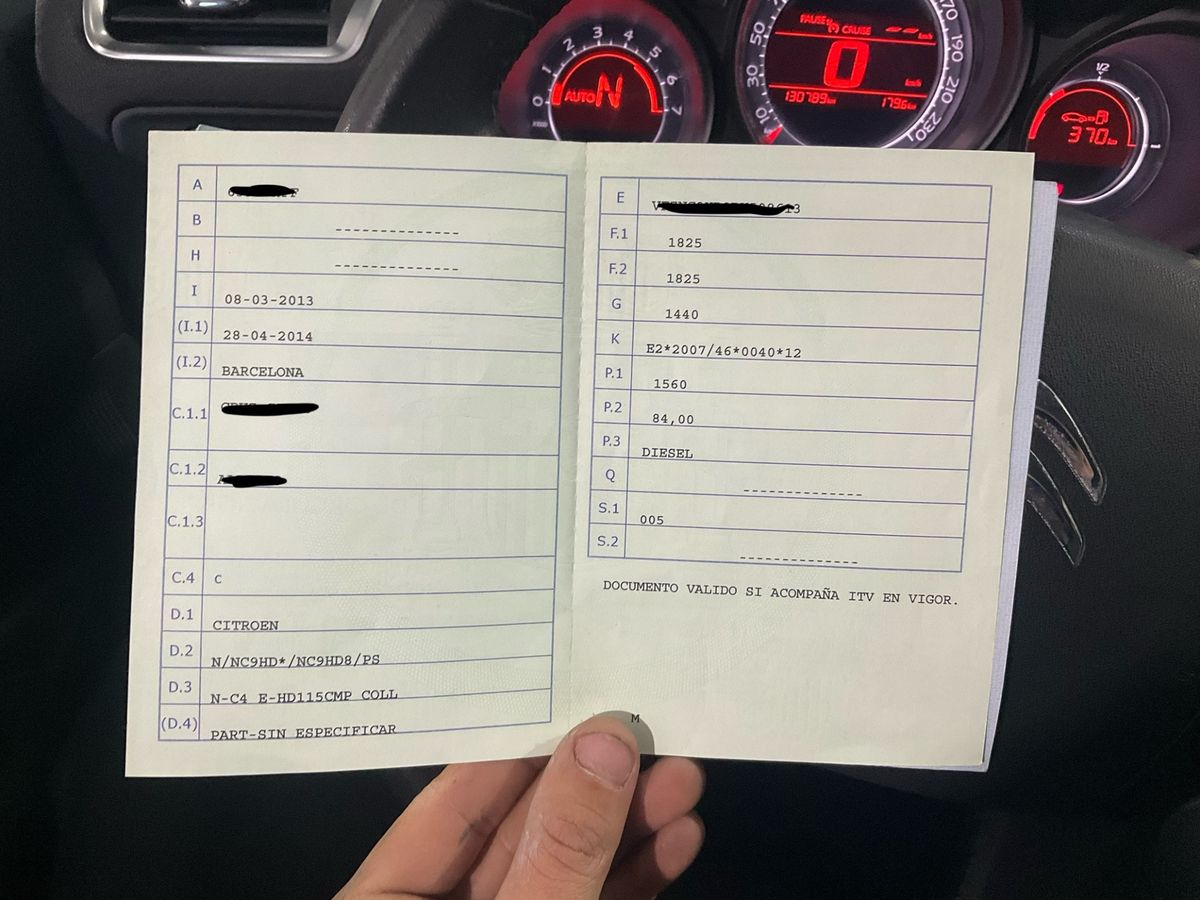 PAUSE CRUISE -- km/h
0 km/h
130789 km 179.6 km
0 1 2 3 4 5 6 7
AUTO N
10 30 50 70 170 190 210 230
1/2
1
370 km
A
B --------------
H --------------
I 08-03-2013
(I.1) 28-04-2014
(I.2) BARCELONA
C.1.1
C.1.2
C.1.3
C.4 C
D.1 CITROEN
D.2 N/NC9HD*/NC9HD8/PS
D.3 N-C4 E-HD115CMP COLL
(D.4) PART-SIN ESPECIFICAR
E
F.1 1825
F.2 1825
G 1440
K E2*2007/46*0040*12
P.1 1560
P.2 84,00
P.3 DIESEL
Q --------------
S.1 005
S.2 --------------
DOCUMENTO VALIDO SI ACOMPAÑA ITV EN VIGOR.
M